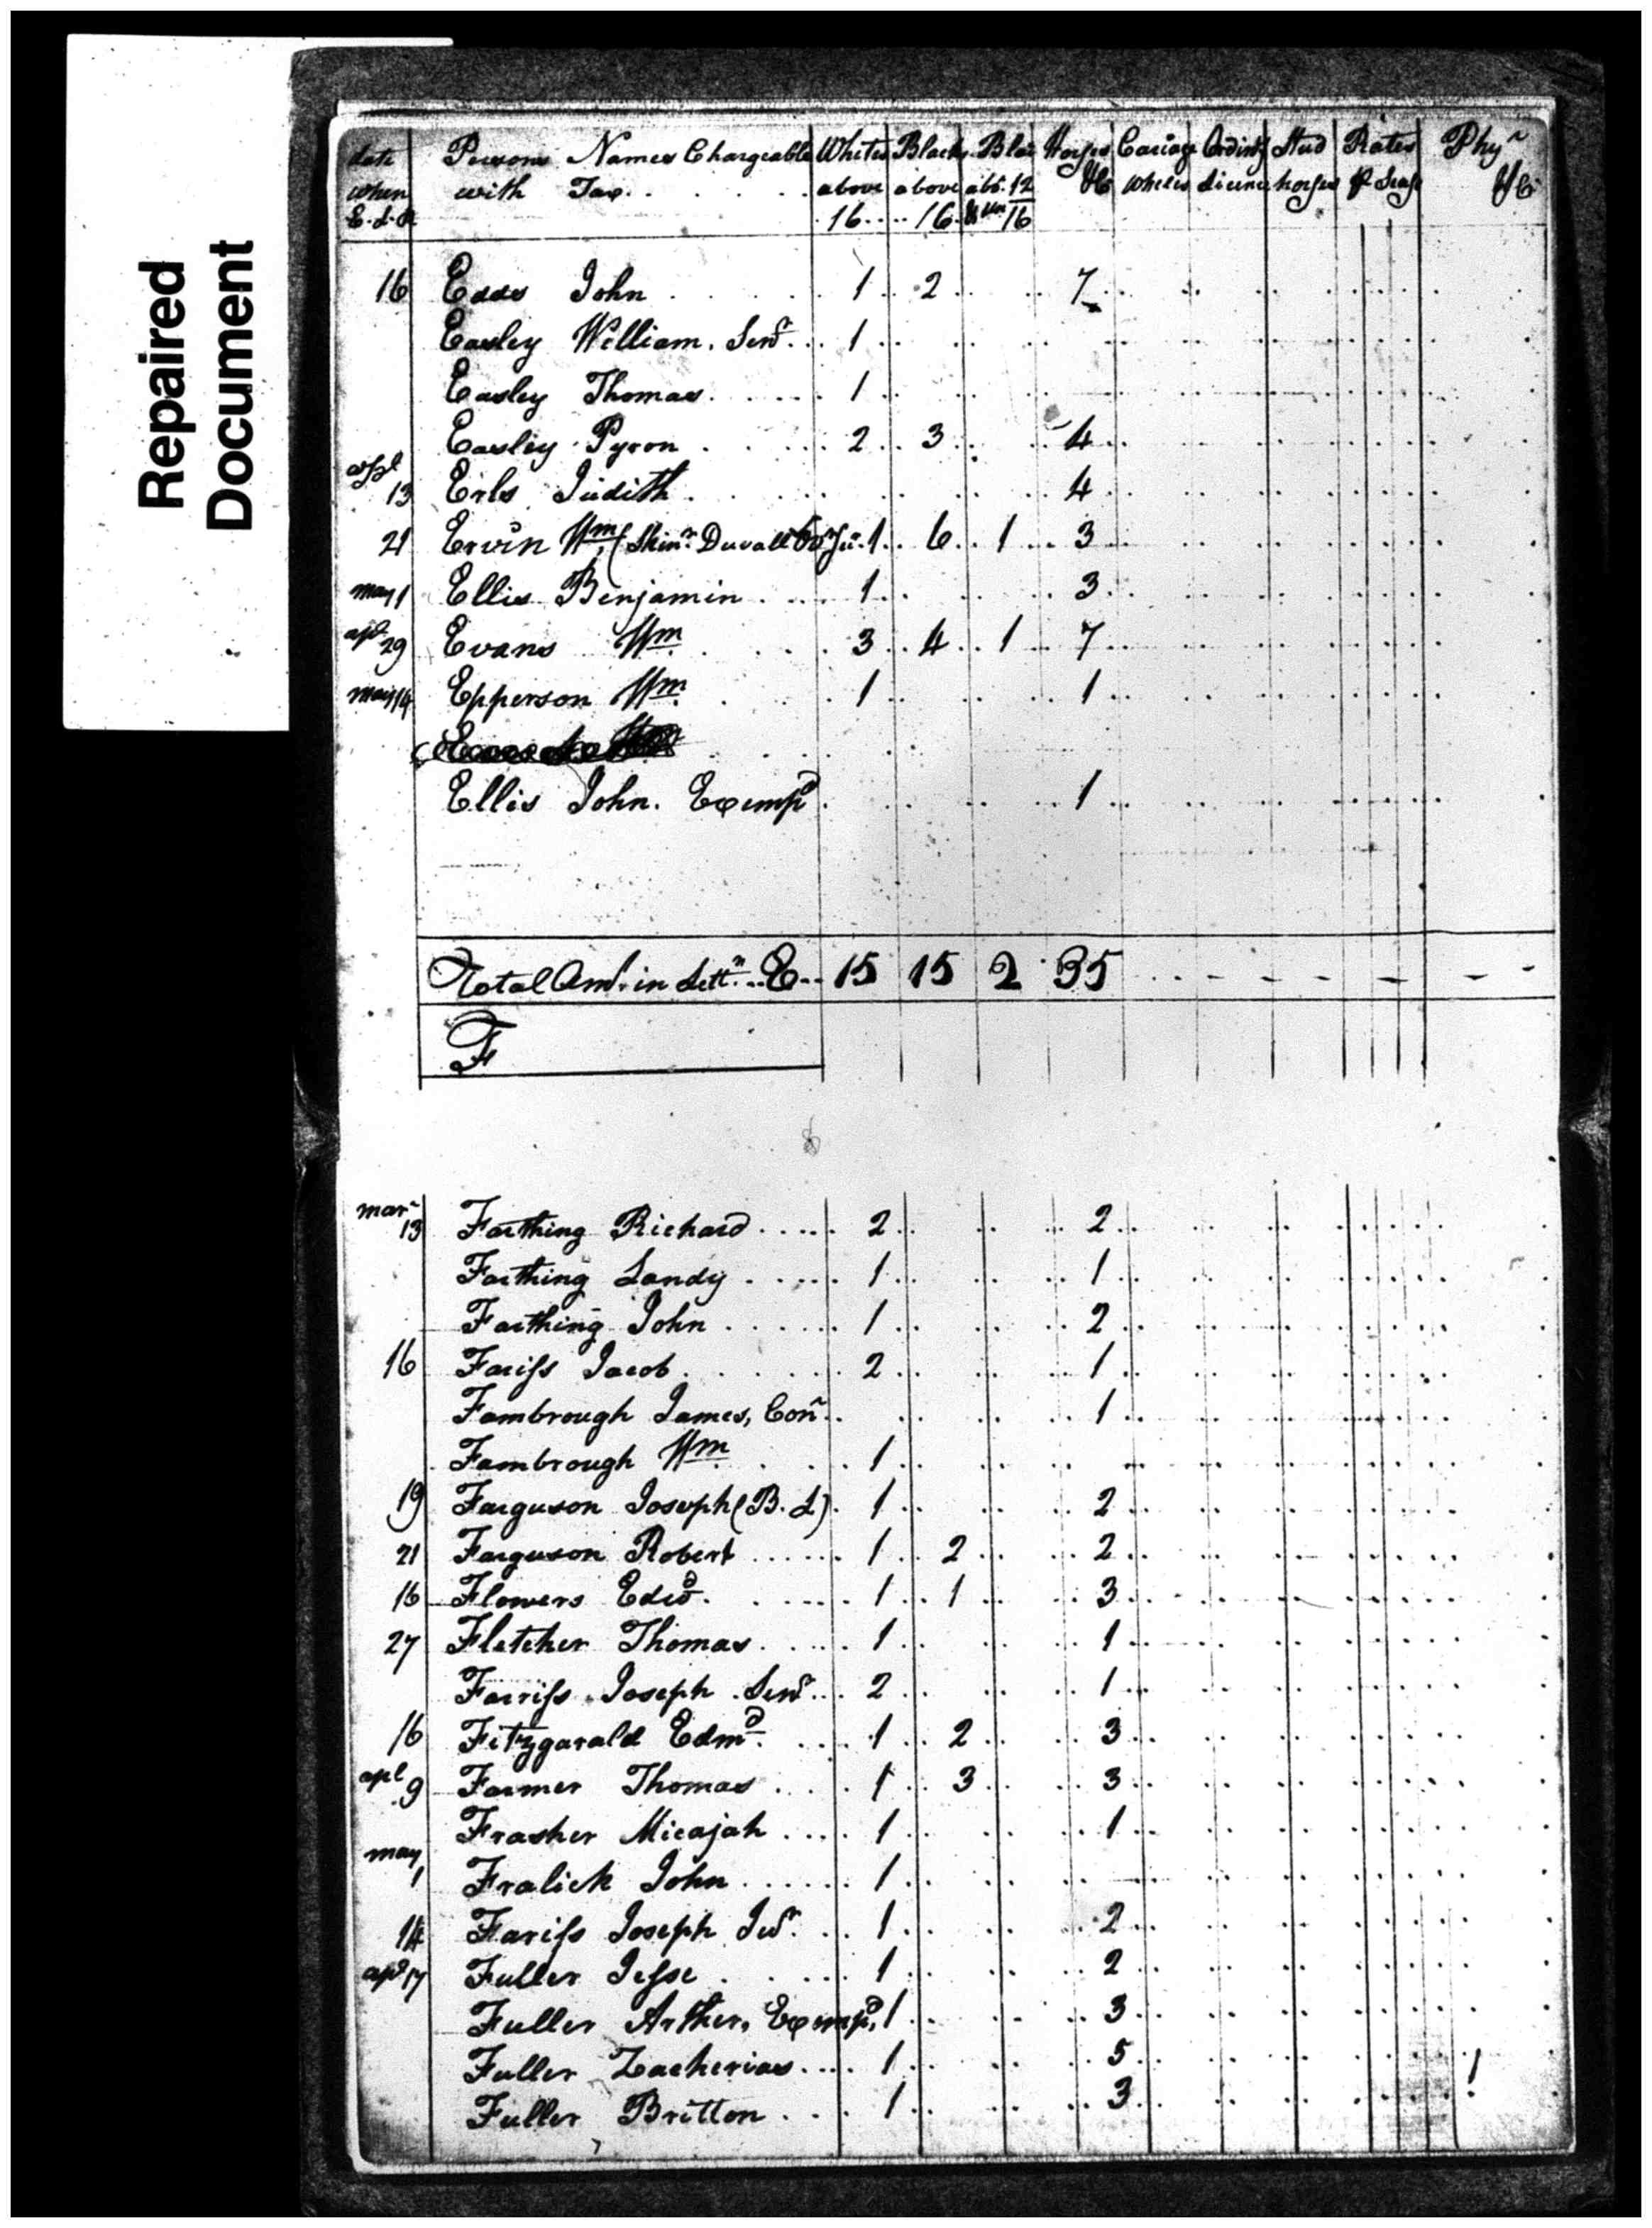 Repaired
Document
date Persons Names Chargeable Whites Blacks Blac Horses Cariage Ordiny Stud Rates Phyn
when with Tax above above abv. 12 &c wheeles licence horses p Seasn &c
16 16 & un 16
16 Edds John 1 2 7
Easley William. Senr. 1
Easley Thomas 1
Easley Pyron 2 3 4
apl
13 Erls Judith 4
21 Ervin Wm. (Skinr. Duvall 1 6 1 3
may 1 Ellis Benjamin 1 3
apl 29 Evans Wm. 3 4 1 7
may 14 Epperson Wm. 1 1
Ellis John. Exempd 1
Total Amt. in Lettr. E 15 15 2 35
F
mar
13 Farthing Richard 2 2
Farthing Landy 1 1
Farthing John 1 2
16 Fariss Jacob 2 1
Fambrough James, Con 1
Fambrough Wm 1
19 Farguson Joseph (B. L) 1 2
21 Farguson Robert 1 2 2
16 Flowers Edwd. 1 1 3
27 Fletcher Thomas 1 1
Farriss Joseph Senr 2 1
16 Fitzgarald Edmd. 1 2 3
apl 9 Farmer Thomas 1 3 3
Frasher Micajah 1 1
may
1 Fralick John 1
14 Fariss Joseph Junr. 1 2
apl 17 Fuller Jesse 1 2
Fuller Arther, Exempd, 1 3
Fuller Zacherias 1 5 1
Fuller Britton 1 3